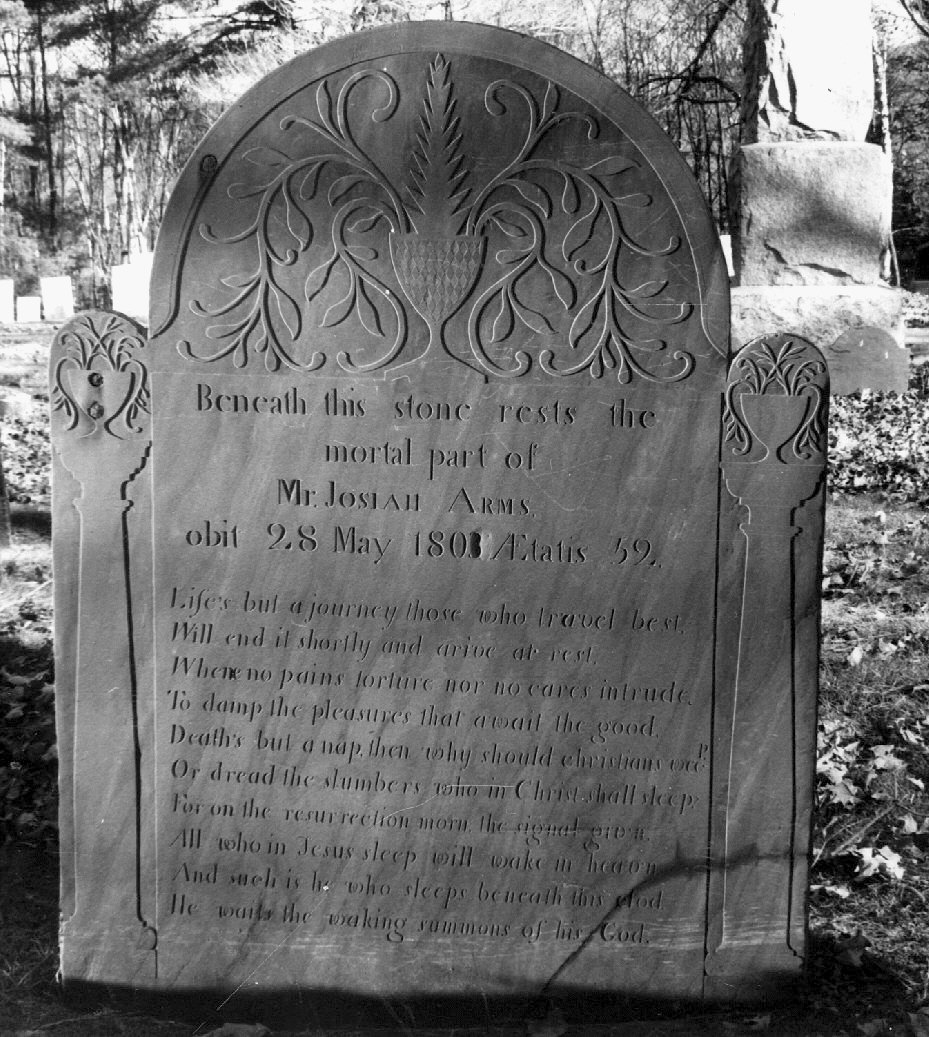 Beneath this stone rests the
mortal part of
Mr. JOSIAH ARMS.
obit 28 May 1803 Ætatis 59.
Life's but a journey those who travel best,
Will end it shortly and arive at rest.
Where no pains torture nor no cares intrude,
To damp the pleasures that await the good,
Death's but a nap, then why should christians weep
Or dread the slumbers who in Christ shall sleep,
For on the resurrection morn, the signal giv'n,
All who in Jesus sleep will wake in heav'n
And such is he who sleeps beneath this clod
He waits the waking summons of his God.